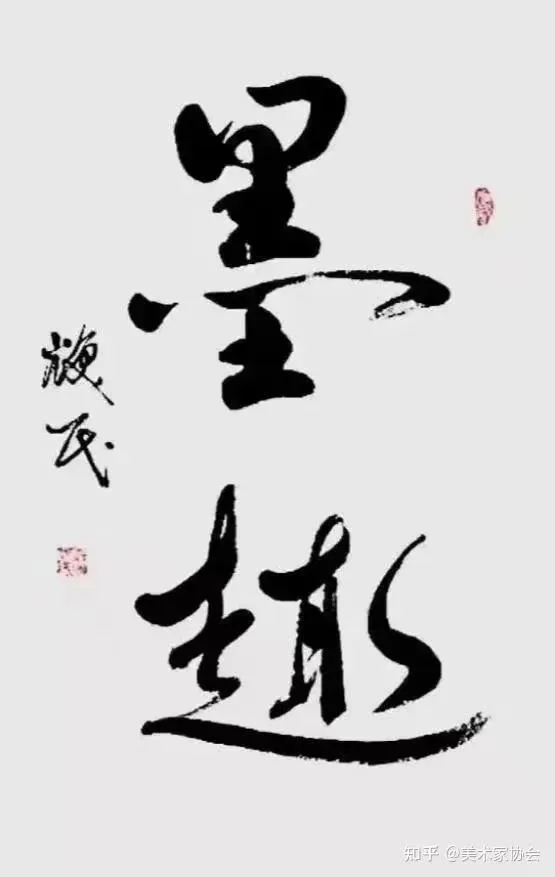 墨趣
民
知乎 @美术家协会